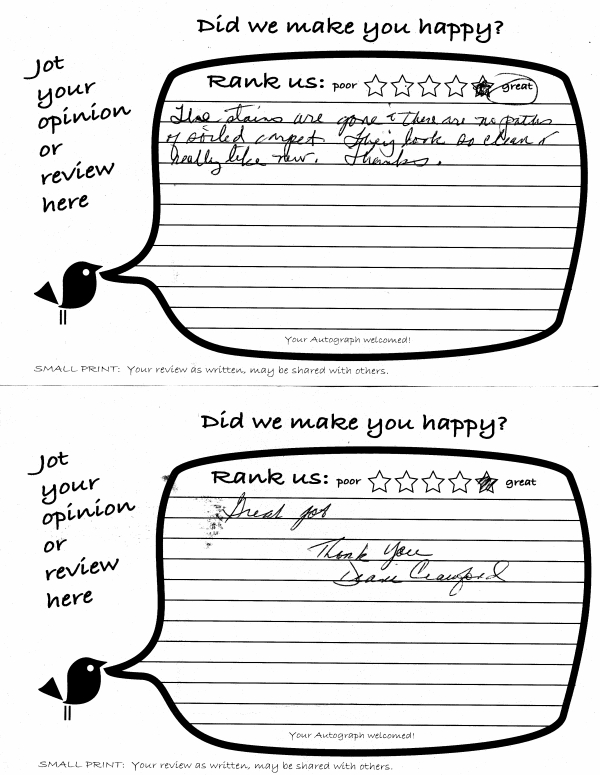 Did we make you happy?
Jot
your
opinion
or
review
here
Rank us: poor great
The stains are gone & there are no paths
of soiled carpet. They look so clean &
really like new. Thanks.
Your Autograph welcomed!
SMALL PRINT: Your review as written, may be shared with others.
Did we make you happy?
Jot
your
opinion
or
review
here
Rank us: poor great
Great job
Thank You
Diane Crawford
Your Autograph welcomed!
SMALL PRINT: Your review as written, may be shared with others.